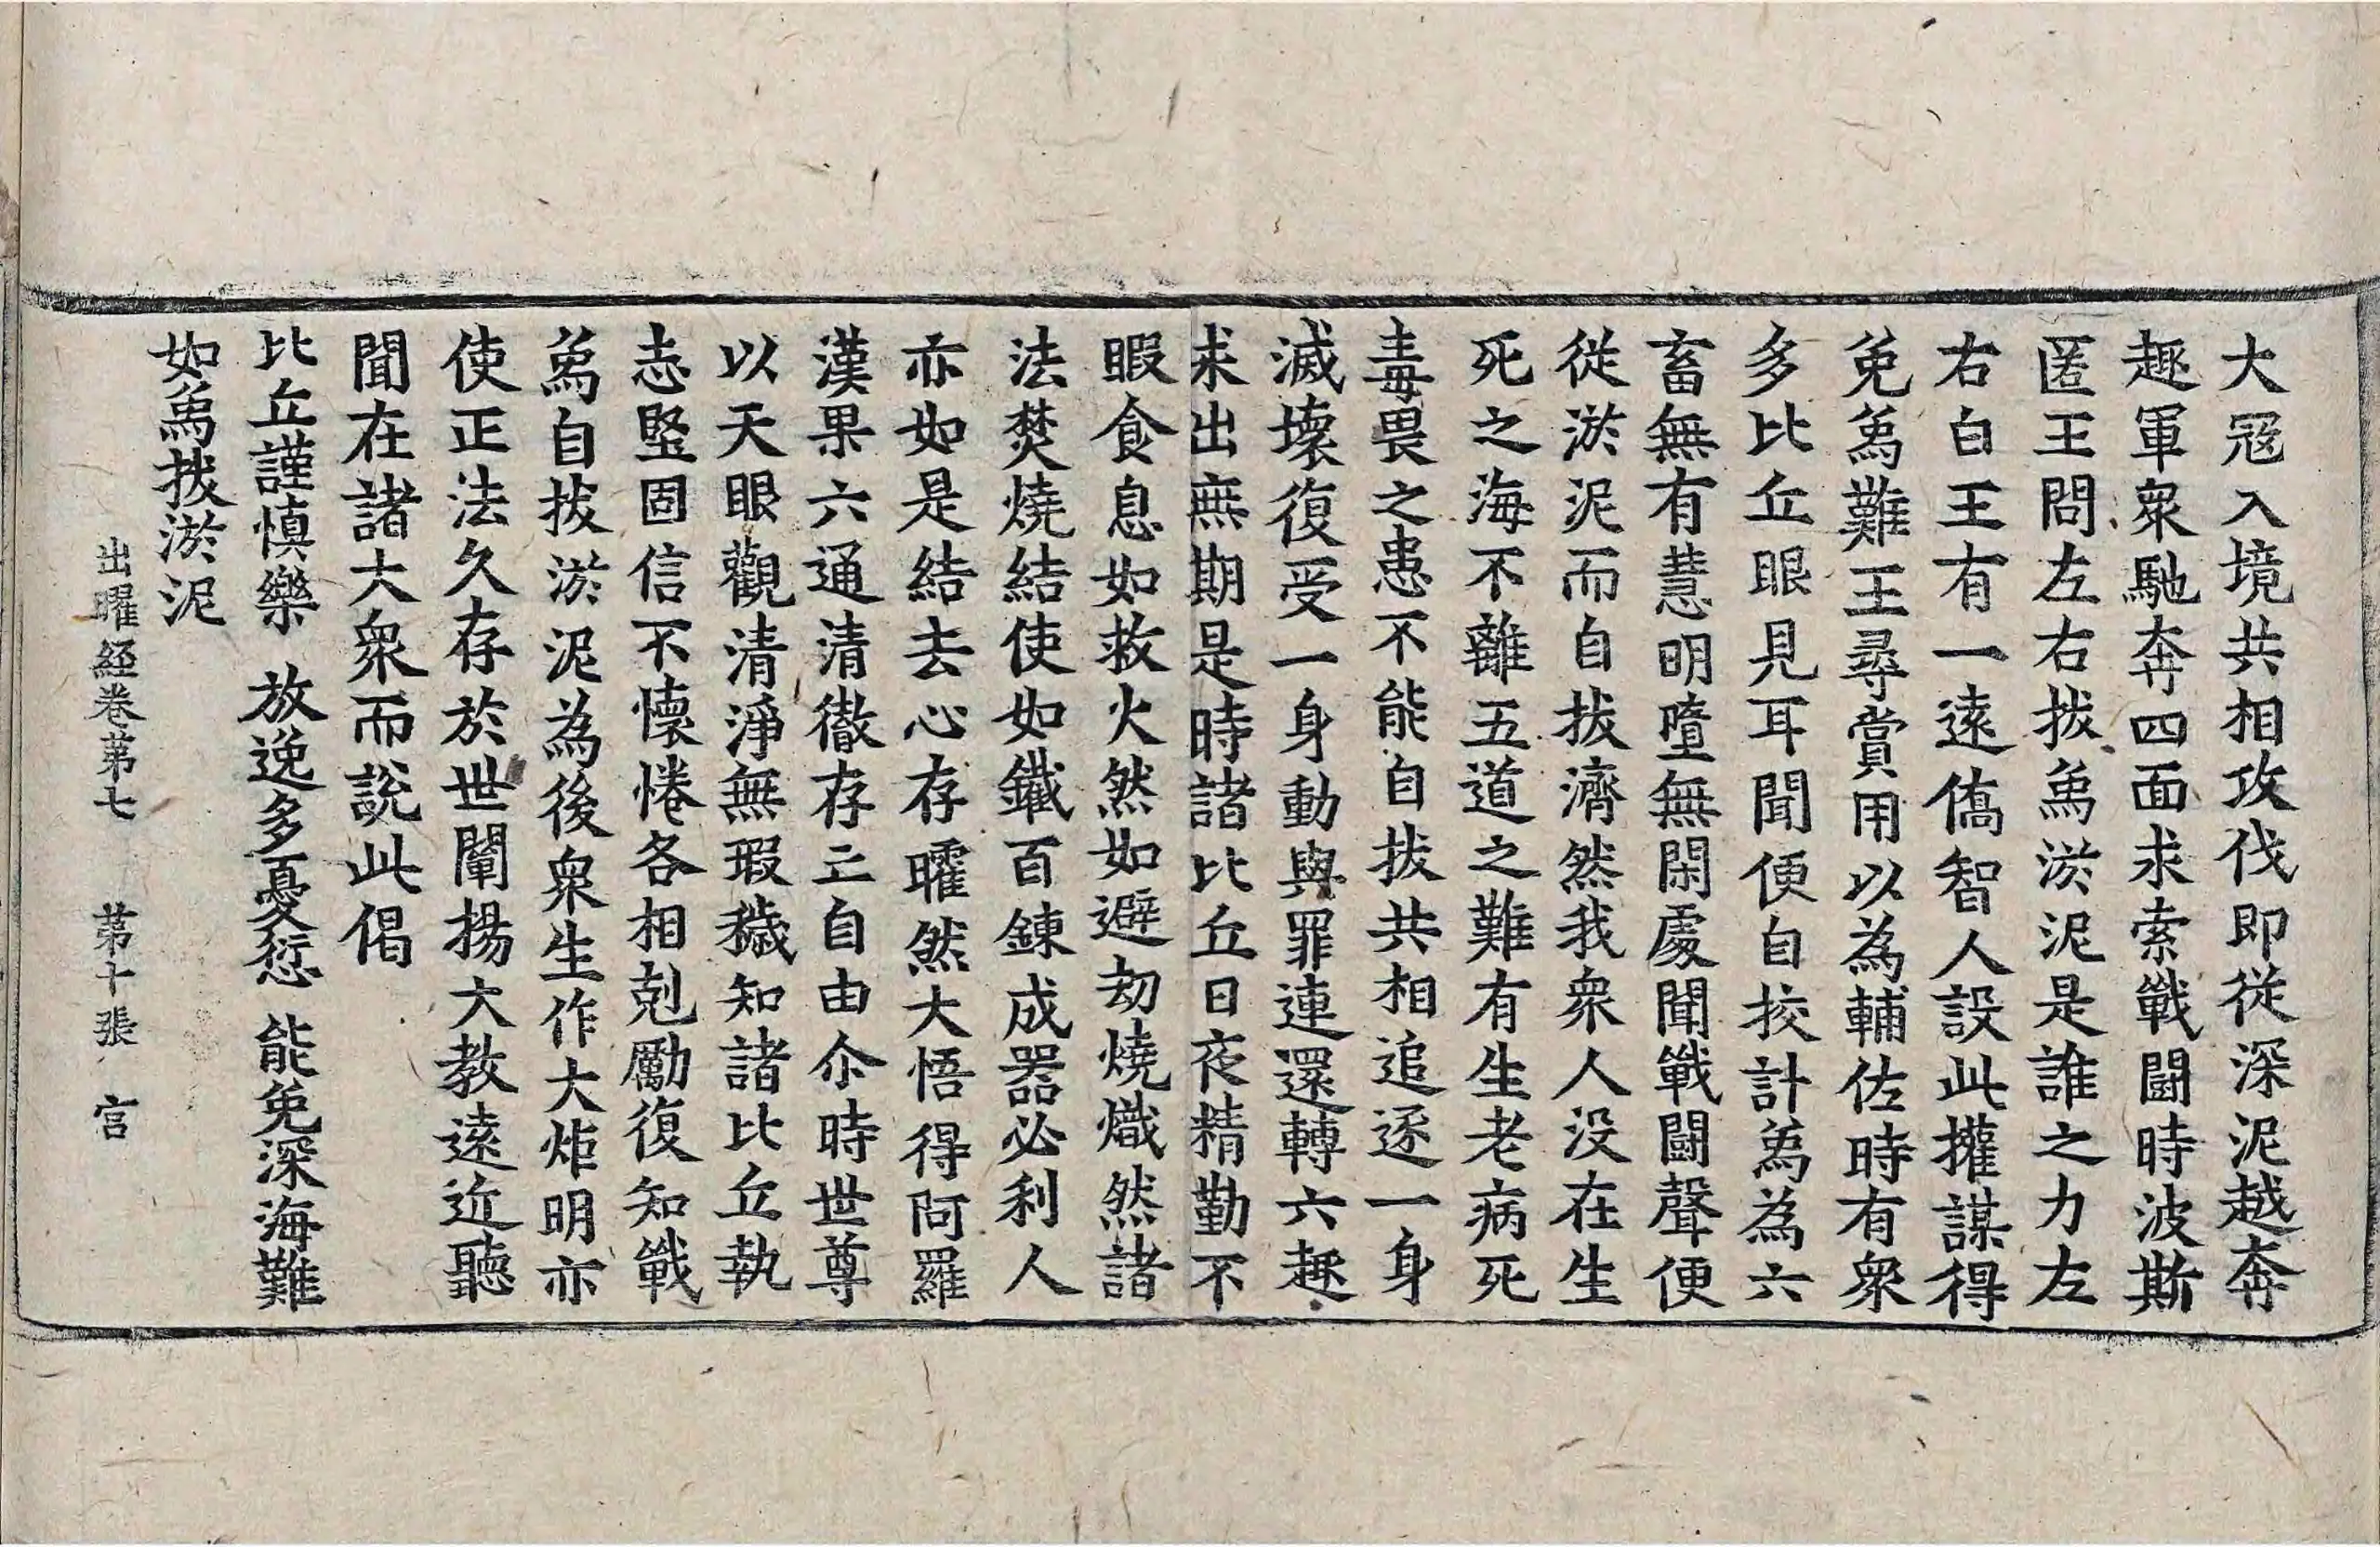 大冦入境共相攻伐即從深泥越奔
趣軍衆馳奔四面求索戰鬪時波斯
匿王問左右拔象淤泥是誰之力左
右白王有一遠僑智人設此權謀得
免象難王尋賞用以為輔佐時有衆
多比丘眼見耳聞便自挍計象為六
畜無有慧明墮無閑處聞戰鬪聲便
從淤泥而自拔濟然我衆人没在生
死之海不離五道之難有生老病死
毒畏之患不能自拔共相追逐一身
滅壞復受一身動與罪連還轉六趣
求出無期是時諸比丘日夜精勤不
暇食息如救火然如避劫燒熾然諸
法焚燒結使如鐵百鍊成器必利人
亦如是結去心存曜然大悟得阿羅
漢果六通清徹存亡自由尒時世尊
以天眼觀清淨無瑕穢知諸比丘執
志堅固信不懷惓各相剋勵復知戰
象自拔淤泥為後衆生作大炬明亦
使正法久存於世闡揚大教遠近聽
聞在諸大衆而說此偈
比丘謹慎樂　放逸多憂愆　能免深海難
如象拔淤泥
出曜経卷苐七　苐十張　宫